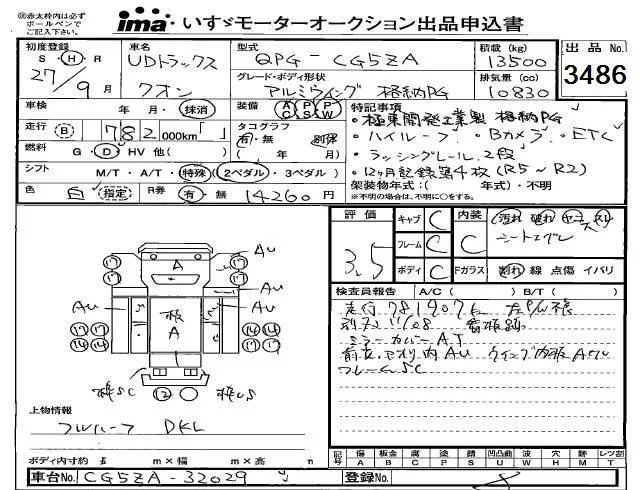 ㊟赤太枠内は必ず
ボールペンで
ご記入下さい。
ima いすゞモーターオークション出品申込書
初度登録 車名 型式 積載 (kg) 出品 No.
S・H・R UDトラックス QPG-CG5ZA 13500 3486
27年9月 クオン グレード・ボディ形状 排気量 (cc)
アルミウイング 格納PG 10830
車検 年 月・抹消 装備 AC PS PW 特記事項
走行 B 782 000km「 」 タコグラフ 有・無 別体 ・極東開発工業製 格納PG
・ハイルーフ ・Bカメラ ・ETC
燃料 G・D・HV 他( ) ( 年 月) ・ラッシングレール 2段
シフト M/T・A/T・特殊(2ペダル・3ペダル) ・12ヶ月記録簿4枚(R5~R2)
色 白 指定 R券 有・無 14260円 架装物年式:( 年式)・不明
※不明の場合は、不明に○をする。
評価 キャブ C 内装 汚れ 破れ ヤニ スレ
3.5 フレーム C シート
ボディ C Fガラス 割れ 線 点傷 イバリ
検査員報告 A/C ( ) B/T ( )
走行781907k
ミラーカバーAT
フレームSC
Au Au
Au Au
A
板
A
17 17
17 17 14 14
14 14
SC 12
上物情報
フルハーフ DKL
ボディ内寸約 長 m×幅 m×高 m
記号 傷 板金 腐 塗 錆 凹凸曲 波 穴 跡 レツ割
A B C P S U W H M T
車台No. CG5ZA-32029 登録No.